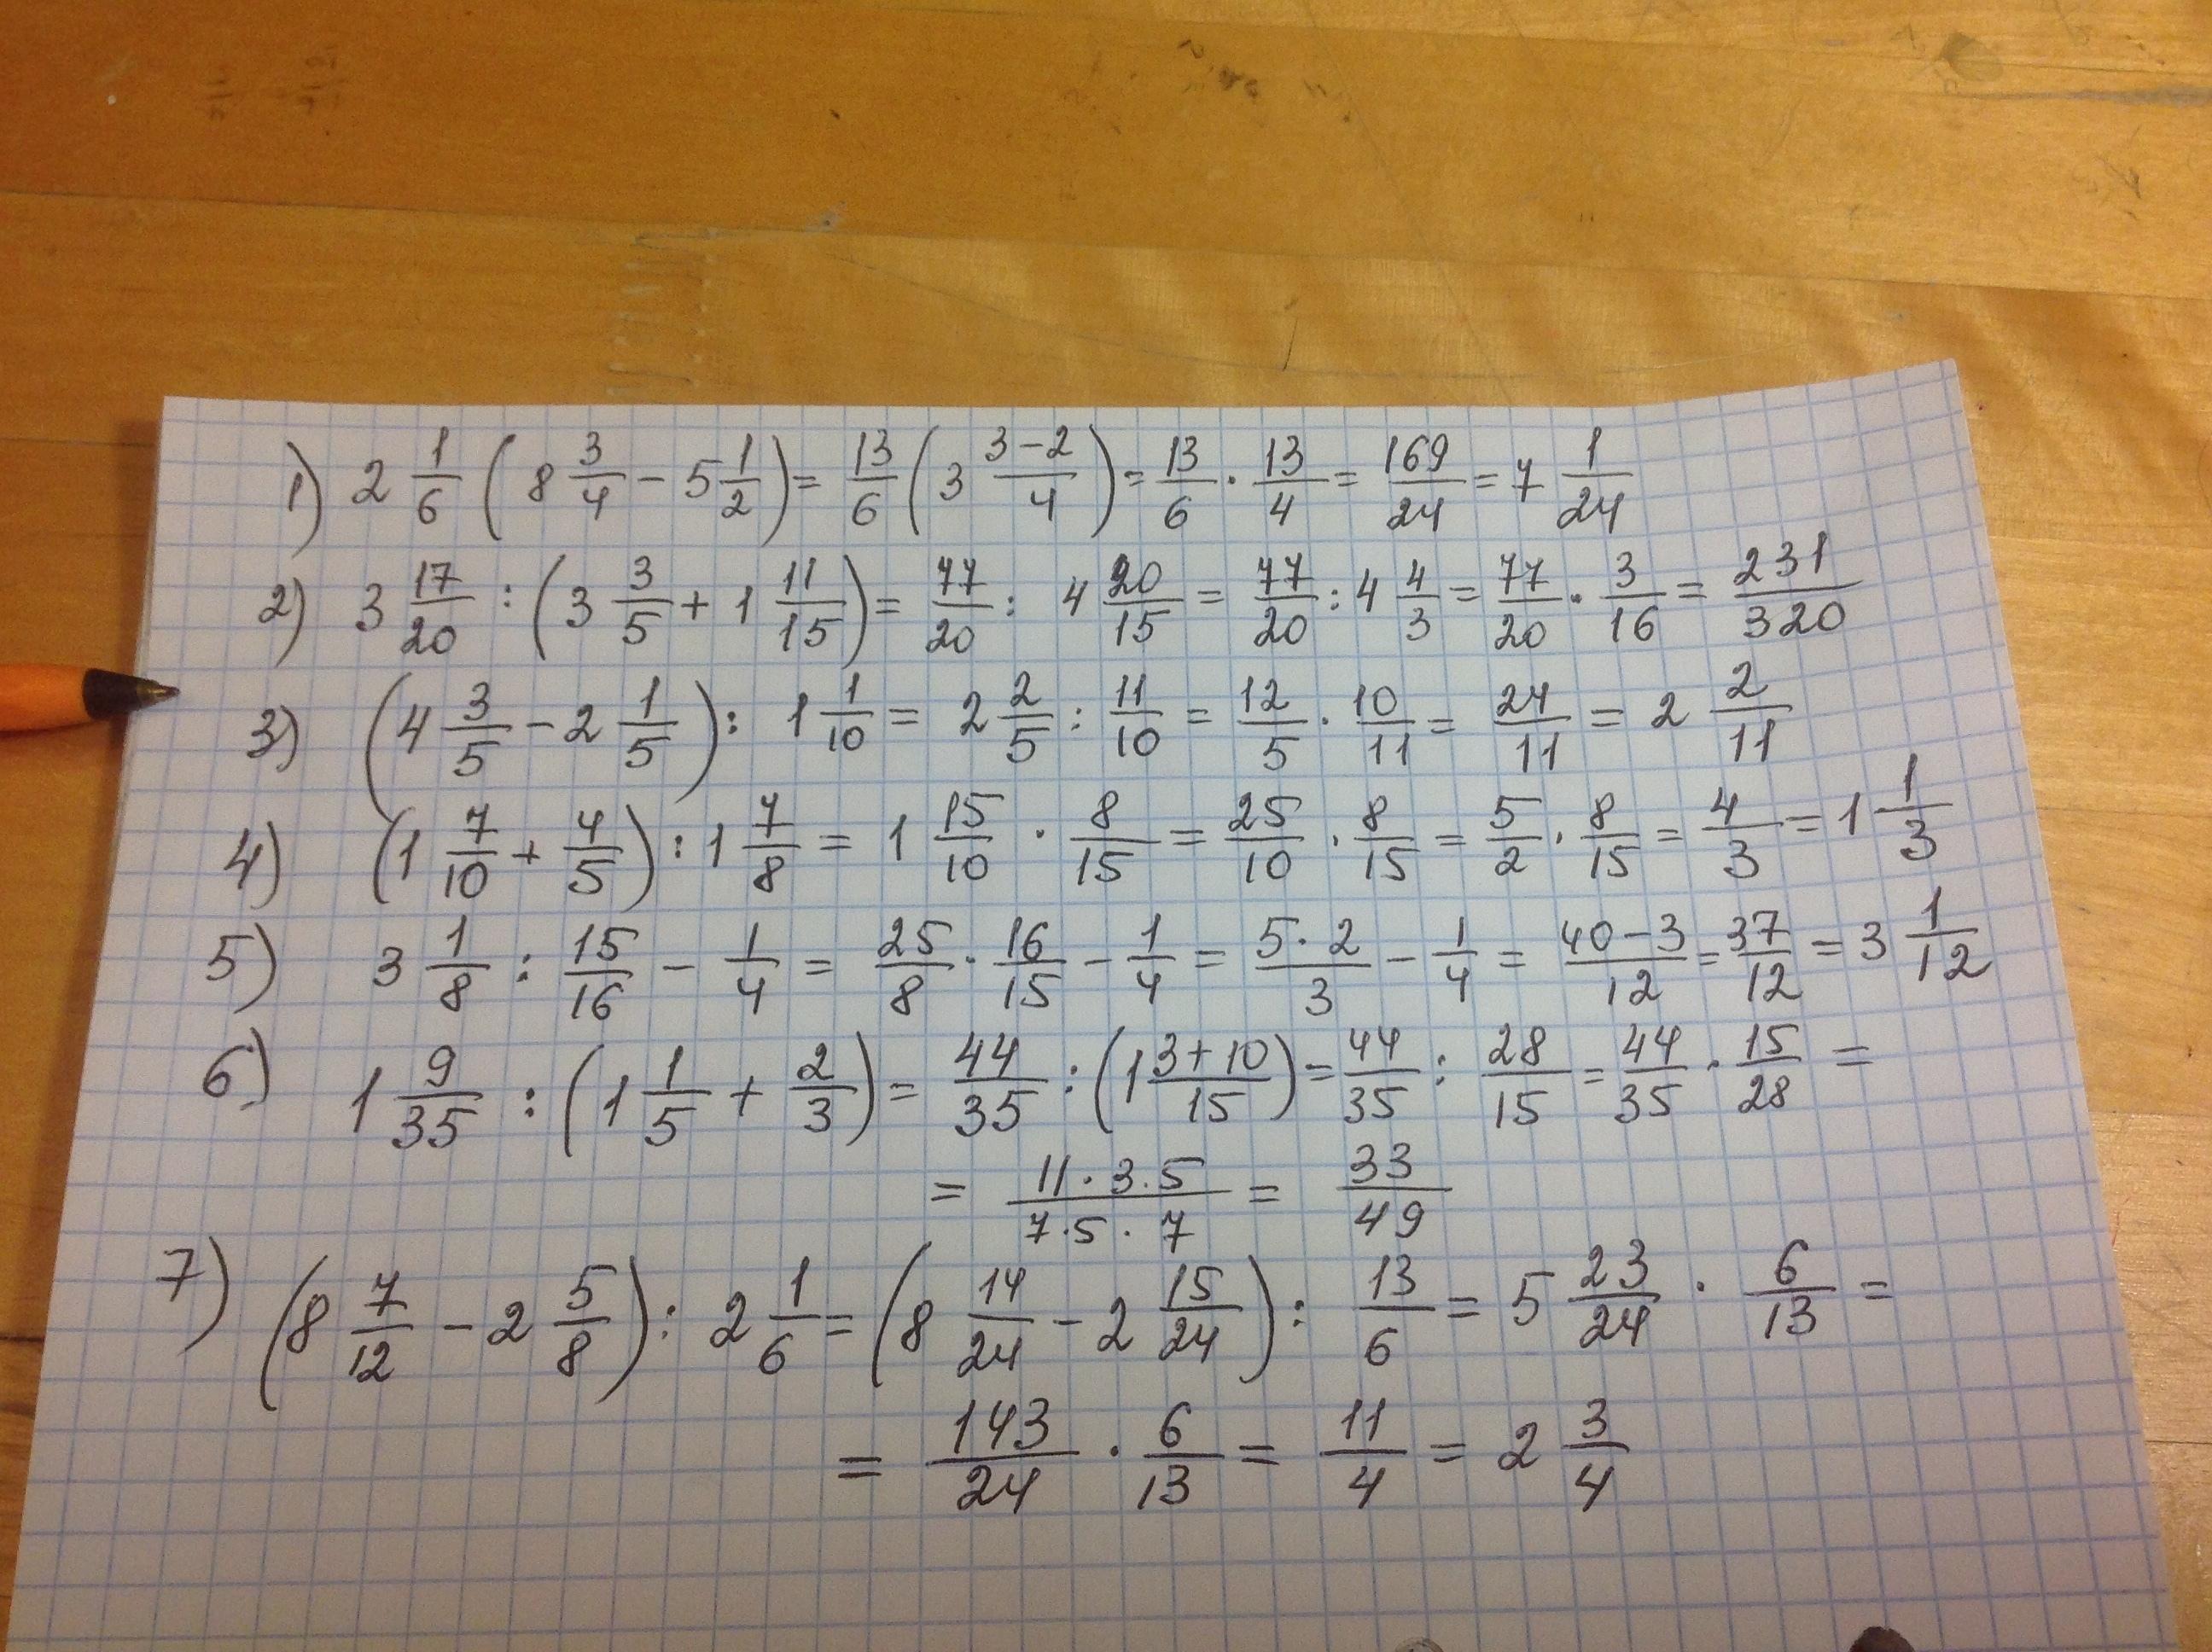 1) 2 1/6 (8 3/4 - 5 1/2) = 13/6 (3 (3-2)/4) = 13/6 · 13/4 = 169/24 = 7 1/24
2) 3 17/20 : (3 3/5 + 1 11/15) = 77/20 : 4 20/15 = 77/20 : 4 4/3 = 77/20 · 3/16 = 231/320
3) (4 3/5 - 2 1/5) : 1 1/10 = 2 2/5 : 11/10 = 12/5 · 10/11 = 24/11 = 2 2/11
4) (1 7/10 + 4/5) : 1 7/8 = 1 15/10 · 8/15 = 25/10 · 8/15 = 5/2 · 8/15 = 4/3 = 1 1/3
5) 3 1/8 : 15/16 - 1/4 = 25/8 · 16/15 - 1/4 = (5·2)/3 - 1/4 = (40-3)/12 = 37/12 = 3 1/12
6) 1 9/35 : (1 1/5 + 2/3) = 44/35 : (1 (3+10)/15) = 44/35 : 28/15 = 44/35 · 15/28 =
= (11·3·5)/(7·5·7) = 33/49
7) (8 7/12 - 2 5/8) : 2 1/6 = (8 14/24 - 2 15/24) : 13/6 = 5 23/24 · 6/13 =
= 143/24 · 6/13 = 11/4 = 2 3/4